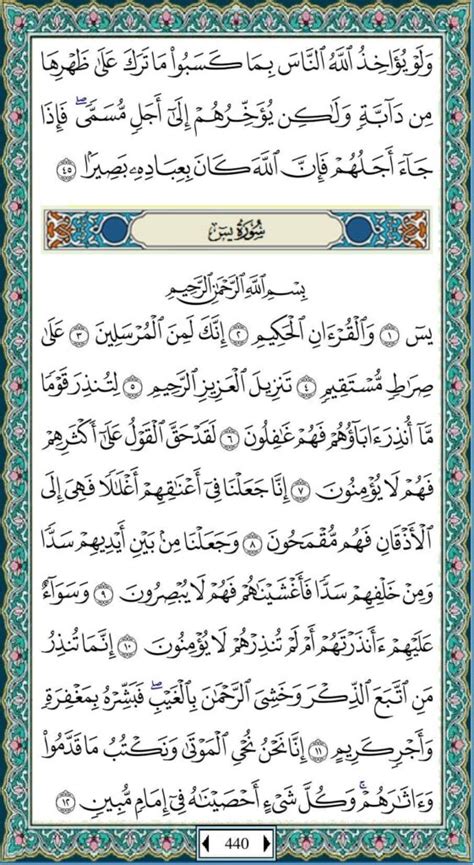 وَلَوْ يُؤَاخِذُ ٱللَّهُ ٱلنَّاسَ بِمَا كَسَبُوا۟ مَا تَرَكَ عَلَىٰ ظَهْرِهَا
مِن دَآبَّةٍ وَلَـٰكِن يُؤَخِّرُهُمْ إِلَىٰٓ أَجَلٍ مُّسَمًّى ۖ فَإِذَا
جَآءَ أَجَلُهُمْ فَإِنَّ ٱللَّهَ كَانَ بِعِبَادِهِۦ بَصِيرًۢا ٤٥
سُورَةُ يسٓ
بِسْمِ ٱللَّهِ ٱلرَّحْمَـٰنِ ٱلرَّحِيمِ
يسٓ ١ وَٱلْقُرْءَانِ ٱلْحَكِيمِ ٢ إِنَّكَ لَمِنَ ٱلْمُرْسَلِينَ ٣ عَلَىٰ
صِرَٰطٍ مُّسْتَقِيمٍ ٤ تَنزِيلَ ٱلْعَزِيزِ ٱلرَّحِيمِ ٥ لِتُنذِرَ قَوْمًا
مَّآ أُنذِرَ ءَابَآؤُهُمْ فَهُمْ غَـٰفِلُونَ ٦ لَقَدْ حَقَّ ٱلْقَوْلُ عَلَىٰٓ أَكْثَرِهِمْ
فَهُمْ لَا يُؤْمِنُونَ ٧ إِنَّا جَعَلْنَا فِىٓ أَعْنَـٰقِهِمْ أَغْلَـٰلًا فَهِىَ إِلَى
ٱلْأَذْقَانِ فَهُم مُّقْمَحُونَ ٨ وَجَعَلْنَا مِنۢ بَيْنِ أَيْدِيهِمْ سَدًّا
وَمِنْ خَلْفِهِمْ سَدًّا فَأَغْشَيْنَـٰهُمْ فَهُمْ لَا يُبْصِرُونَ ٩ وَسَوَآءٌ
عَلَيْهِمْ ءَأَنذَرْتَهُمْ أَمْ لَمْ تُنذِرْهُمْ لَا يُؤْمِنُونَ ١٠ إِنَّمَا تُنذِرُ
مَنِ ٱتَّبَعَ ٱلذِّكْرَ وَخَشِىَ ٱلرَّحْمَـٰنَ بِٱلْغَيْبِ ۖ فَبَشِّرْهُ بِمَغْفِرَةٍ
وَأَجْرٍ كَرِيمٍ ١١ إِنَّا نَحْنُ نُحْىِ ٱلْمَوْتَىٰ وَنَكْتُبُ مَا قَدَّمُوا۟
وَءَاثَـٰرَهُمْ ۚ وَكُلَّ شَىْءٍ أَحْصَيْنَـٰهُ فِىٓ إِمَامٍ مُّبِينٍ ١٢
440